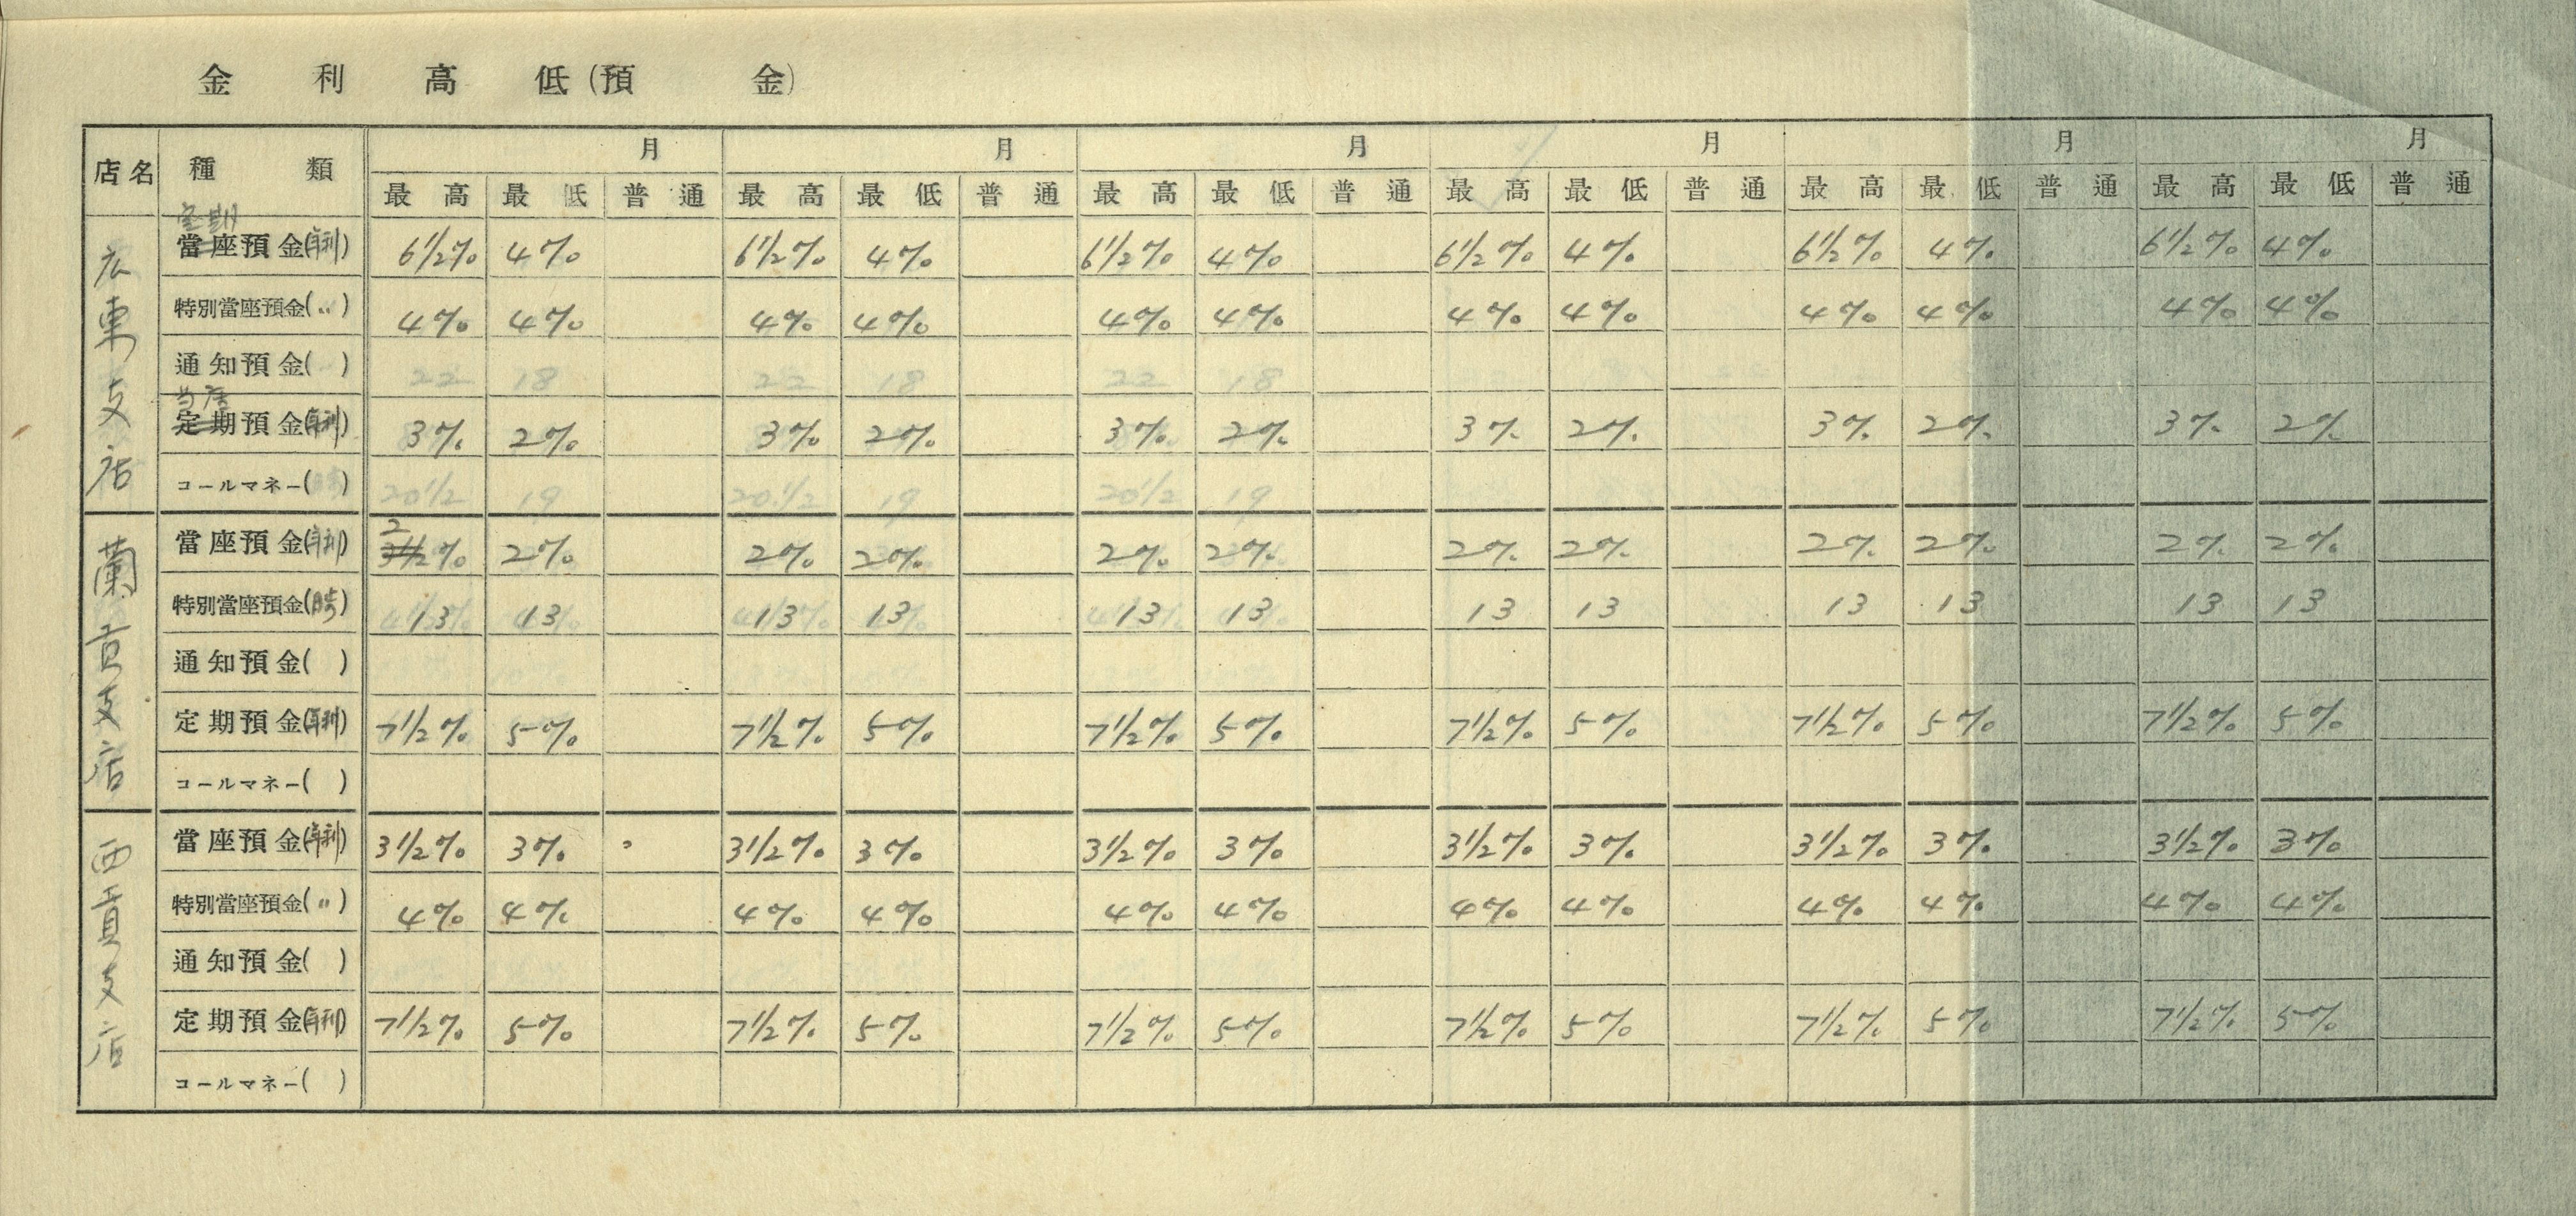 金利高低(預金)
店名 種類 月 月 月 月 月 月
最高 最低 普通 最高 最低 普通 最高 最低 普通 最高 最低 普通 最高 最低 普通 最高 最低 普通
広東支店
定期
當座預金(年利) 6 1/2% 4% 6 1/2% 4% 6 1/2% 4% 6 1/2% 4% 6 1/2% 4% 6 1/2% 4%
特別當座預金(〃) 4% 4% 4% 4% 4% 4% 4% 4% 4% 4% 4% 4%
通知預金( ) 22 18 22 18 22 18
当座
定期預金(年利) 3% 2% 3% 2% 3% 2% 3% 2% 3% 2% 3% 2%
コールマネー( ) 20 1/2 19 20 1/2 19 20 1/2 19
蘭貢支店
2
當座預金(年利) 3 1/2% 2% 2% 2% 2% 2% 2% 2% 2% 2% 2% 2%
特別當座預金(日歩) 13 13 13 13 13 13 13 13 13 13 13 13
通知預金( )
定期預金(年利) 7 1/2% 5% 7 1/2% 5% 7 1/2% 5% 7 1/2% 5% 7 1/2% 5% 7 1/2% 5%
コールマネー( )
西貢支店
當座預金(年利) 3 1/2% 3% 3 1/2% 3% 3 1/2% 3% 3 1/2% 3% 3 1/2% 3% 3 1/2% 3%
特別當座預金(〃) 4% 4% 4% 4% 4% 4% 4% 4% 4% 4% 4% 4%
通知預金( )
定期預金(年利) 7 1/2% 5% 7 1/2% 5% 7 1/2% 5% 7 1/2% 5% 7 1/2% 5% 7 1/2% 5%
コールマネー( )